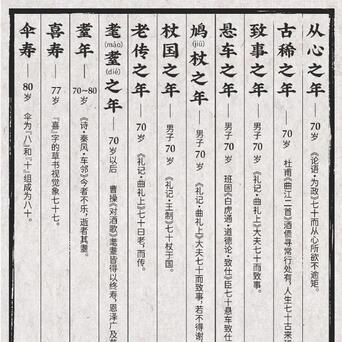 从心之年 70岁 《论语·为政》七十而从心所欲不逾矩。
古稀之年 70岁 杜甫《曲江二首》酒债寻常行处有，人生七十古来
致事之年 70岁 男子 《礼记·曲礼上》大夫七十而致事。
悬车之年 70岁 男子 班固《白虎通·道德论·致仕》臣七十悬车致仕
鸠(jiū)杖之年 70岁 男子 《礼记·曲礼上》大夫七十而致事，若不得谢，
杖国之年 70岁 男子 《礼记·王制》七十杖于国。
老传之年 70岁 《礼记·曲礼上》七十曰老，而传。
耄(mào)耋(dié)之年 70岁以后 曹操《对酒歌》耄耋皆得以终寿，恩泽广及
耋年 70~80岁 《诗·秦风·车邻》今者不乐，逝者其耋。
喜寿 77岁 “喜”字的草书视觉象七十七。
伞寿 80岁 伞为“八”和“十”组成为八十。